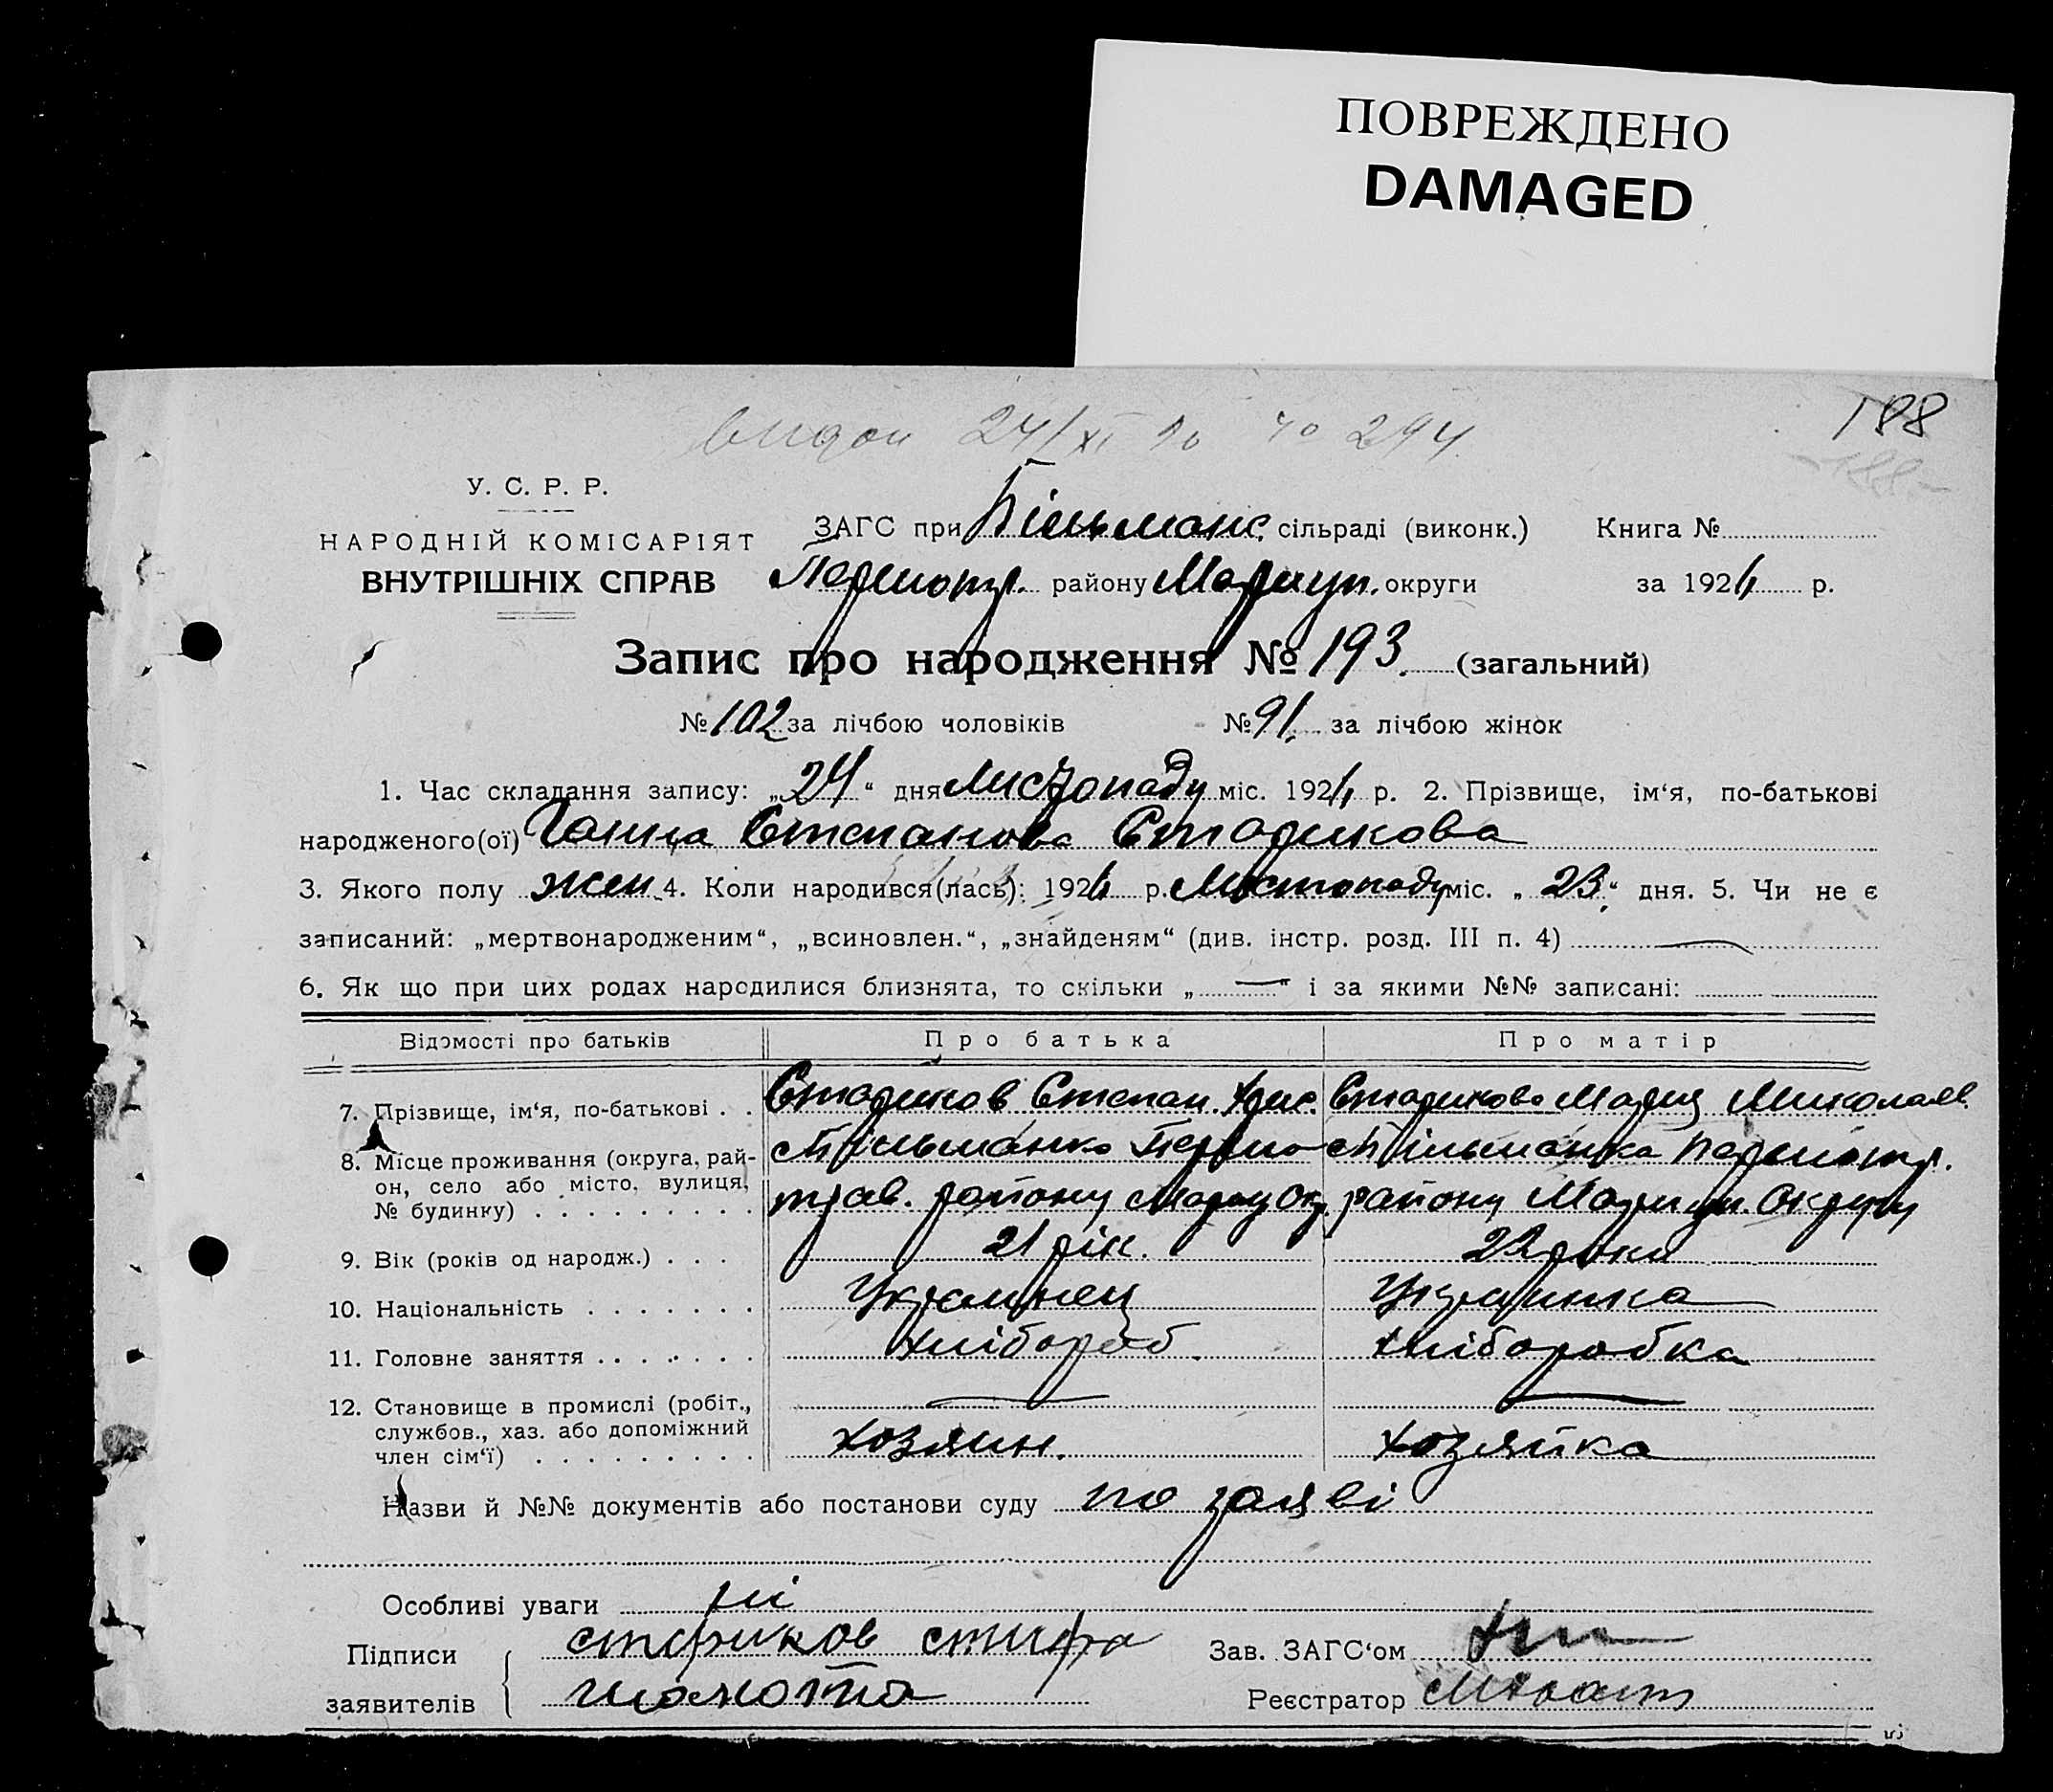 ПОВРЕЖДЕНО
DAMAGED
188
24/XI 294
188
У. С. Р. Р.
НАРОДНІЙ КОМІСАРІЯТ
ВНУТРІШНІХ СПРАВ
ЗАГС при Більманс. сільраді (виконк.) Книга №
Першотр. району Маріуп. округи за 192 р.
Запис про народження № 193. (загальний)
№ 102 за лічбою чоловіків № 91. за лічбою жінок
1. Час складання запису: „24“ дня Листопаду міс. 192 р. 2. Прізвище, ім‘я, по-батькові
народженого(ої) Ганна Степанова Старикова
3. Якого полу жен. 4. Коли народився(лась): 192 р. Листопаду міс. „23“ дня. 5. Чи не є
записаний: „мертвонародженим“, „всиновлен.“, „знайденям“ (див. інстр. розд. III п. 4) —
6. Як що при цих родах народилися близнята, то скільки „—“ і за якими №№ записані:
Відомості про батьків Про батька Про матір
7. Прізвище, ім‘я, по-батькові . . Стариков Степан. Хрис. Старикова Мария Миколаев.
8. Місце проживання (округа, рай- Більманка Першо Більманка Першотр.
он, село або місто, вулиця, трав. району Мариуп Ок. району Мариуп. Округу
№ будинку) . . . . . . . . .
9. Вік (років од народж.) . . . 21 рік. 22 роки
10. Національність . . . . . . . Украинец Украинка
11. Головне заняття . . . . . . . Хлібороб. Хліборобка
12. Становище в промислі (робіт., — —
службов., хаз. або допоміжний хозяин. хозяйка
член сім‘ї) . . . . . . . . .
Назви й №№ документів або постанови суду по заяві
Особливі уваги ні
Підписи стариков Зав. ЗАГС‘ом
заявителів Реєстратор